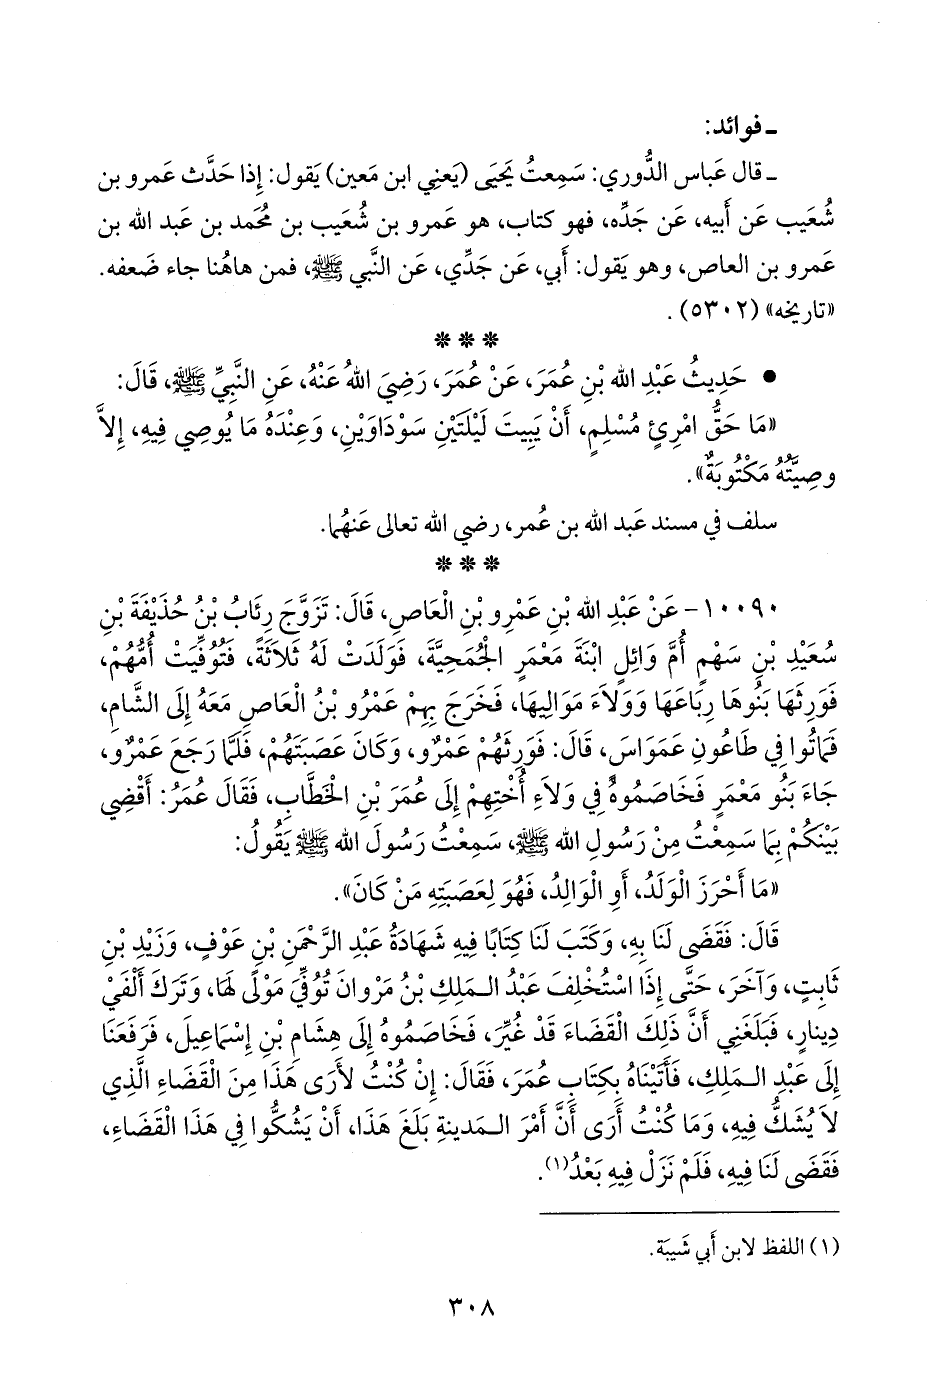 ـ فوائد:
ـ قال عَباس الدُّوري: سَمِعتُ يَحيَى (يَعنِي ابن مَعين) يَقول: إِذا حَدَّث عَمرو بن
شُعَيب عَن أَبيه، عَن جَدِّه، فهو كتاب، هو عَمرو بن شُعَيب بن مُحَمد بن عَبد الله بن
عَمرو بن العاص، وهو يَقول: أَبي، عَن جَدِّي، عَن النَّبي ﷺ، فمن هاهُنا جاء ضَعفه.
«تاريخه» (٥٣٠٢).
* * *
● حَدِيثُ عَبْدِ الله بْنِ عُمَرَ، عَنْ عُمَرَ، رَضِيَ اللهُ عَنْهُ، عَنِ النَّبِيِّ ﷺ، قَالَ:
«مَا حَقُّ امْرِئٍ مُسْلِمٍ، أَنْ يَبِيتَ لَيْلَتَيْنِ سَوْدَاوَيْنِ، وَعِنْدَهُ مَا يُوصِي فِيهِ، إِلاَّ
وصِيَّتُهُ مَكْتُوبَةٌ».
سلف في مسند عَبد الله بن عُمر، رضي الله تعالى عَنهُما.
* * *
١٠٠٩٠- عَنْ عَبْدِ الله بْنِ عَمْرِو بْنِ الْعَاصِ، قَالَ: تَزَوَّجَ رِئَابُ بْنُ حُذَيْفَةَ بْنِ
سُعَيْدِ بْنِ سَهْمٍ أُمَّ وَائِلٍ ابْنَةَ مَعْمَرٍ الْجُمَحِيَّةَ، فَوَلَدَتْ لَهُ ثَلاَثَةً، فَتُوُفِّيَتْ أُمُّهُمْ،
فَوَرِثَهَا بَنُوهَا رِبَاعَهَا وَوَلاَءَ مَوَالِيهَا، فَخَرَجَ بِهِمْ عَمْرُو بْنُ الْعَاصِ مَعَهُ إِلَى الشَّامِ،
فَمَاتُوا فِي طَاعُونِ عَمَوَاسَ، قَالَ: فَوَرِثَهُمْ عَمْرٌو، وَكَانَ عَصَبَتَهُمْ، فَلَمَّا رَجَعَ عَمْرٌو،
جَاءَ بَنُو مَعْمَرٍ فَخَاصَمُوهُ فِي وَلاَءِ أُخْتِهِمْ إِلَى عُمَرَ بْنِ الْخَطَّابِ، فَقَالَ عُمَرُ: أَقْضِي
بَيْنَكُمْ بِمَا سَمِعْتُ مِنْ رَسُولِ الله ﷺ، سَمِعْتُ رَسُولَ الله ﷺ يَقُولُ:
«مَا أَحْرَزَ الْوَلَدُ، أَوِ الْوَالِدُ، فَهُوَ لِعَصَبَتِهِ مَنْ كَانَ».
قَالَ: فَقَضَى لَنَا بِهِ، وَكَتَبَ لَنَا كِتَابًا فِيهِ شَهَادَةُ عَبْدِ الرَّحْمَنِ بْنِ عَوْفٍ، وَزَيْدِ بْنِ
ثَابِتٍ، وَآخَرَ، حَتَّى إِذَا اسْتُخْلِفَ عَبْدُ الـمَلِكِ بْنُ مَرْوانَ تُوُفِّيَ مَوْلًى لَهَا، وَتَرَكَ أَلْفَيْ
دِينارٍ، فَبَلَغَنِي أَنَّ ذَلِكَ الْقَضَاءَ قَدْ غُيِّرَ، فَخَاصَمُوهُ إِلَى هِشَامِ بْنِ إِسْمَاعِيلَ، فَرَفَعَنَا
إِلَى عَبْدِ الـمَلِكِ، فَأَتَيْنَاهُ بِكِتَابِ عُمَرَ، فَقَالَ: إِنْ كُنْتُ لأَرَى هَذَا مِنَ الْقَضَاءِ الَّذِي
لاَ يُشَكُّ فِيهِ، وَمَا كُنْتُ أَرَى أَنَّ أَمْرَ الـمَدينةِ بَلَغَ هَذَا، أَنْ يَشُكُّوا فِي هَذَا الْقَضَاءِ،
فَقَضَى لَنَا فِيهِ، فَلَمْ نَزَلْ فِيهِ بَعْدُ(١).
(١) اللفظ لابن أَبي شَيبَة.
٣٠٨